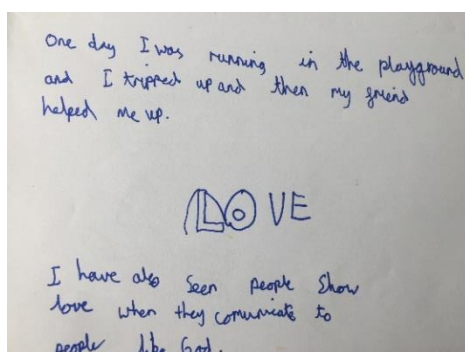 One day I was running in the playground
and I tripped up and then my friend
helped me up.
LOVE
I have also seen people show
love when they comunicate to
people like God.